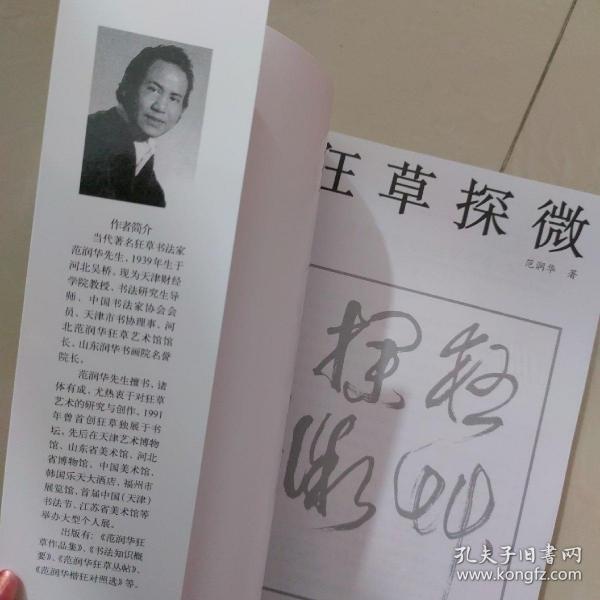 作者简介
当代著名狂草书法家
范润华先生，1939年生于
河北吴桥。现为天津财经
学院教授、书法研究生导
师、中国书法家协会会
员、天津市书协理事、河
北范润华狂草艺术馆馆
长、山东润华书画院名誉
院长。
范润华先生擅书，诸
体有成，尤热衷于对狂草
艺术的研究与创作。1991
年曾首创狂草独展于书
坛，先后在天津艺术博物
馆、山东省美术馆、河北
省博物馆、中国美术馆、
韩国乐天大酒店、福州市
展览馆、首届中国（天津）
书法节、江苏省美术馆等
举办大型个人展。
出版有：《范润华狂
草作品集》、《书法知识概
要》、《范润华狂草丛帖》、
《范润华楷狂对照选》等。
狂草探微
范润华 著
狂草
探微
孔夫子旧书网
www.kongfz.com